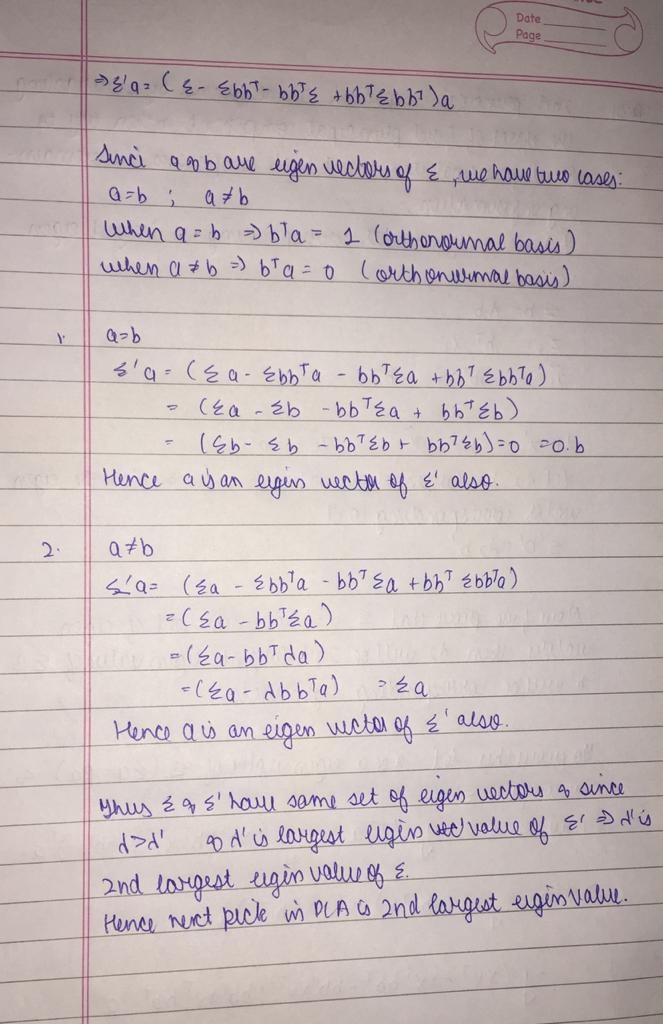 Date
Page
⇒ Σ'a = (Σ - Σbbᵀ - bbᵀΣ + bbᵀΣbbᵀ)a
Sinci a & b are eigen vectors of Σ, we have two cases:
a=b ; a≠b
When a = b ⇒ bᵀa = 1 (orthonormal basis)
when a ≠ b ⇒ bᵀa = 0 (orthonormal basis)
1. a=b
Σ'a = (Σa - Σbbᵀa - bbᵀΣa + bbᵀΣbbᵀa)
= (Σa - Σb - bbᵀΣa + bbᵀΣb)
= (Σb - Σb - bbᵀΣb + bbᵀΣb) = 0 = 0.b
Hence a is an eigen vector of Σ' also.
2. a≠b
Σ'a = (Σa - Σbbᵀa - bbᵀΣa + bbᵀΣbbᵀa)
= (Σa - bbᵀΣa)
= (Σa - bbᵀλa)
= (Σa - λbbᵀa) = Σa
Hence a is an eigen vector of Σ' also.
Thus Σ & Σ' have same set of eigen vectors & since
λ>λ' & λ' is largest eigen value of Σ' ⇒ λ' is
2nd largest eigen value of Σ.
Hence next pick in PCA is 2nd largest eigen value.